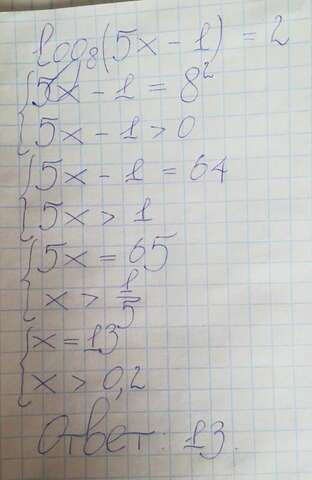 log₈(5x - 1) = 2
5x - 1 = 8²
5x - 1 > 0
5x - 1 = 64
5x > 1
5x = 65
x > 1/5
x = 13
x > 0,2
Ответ: 13.